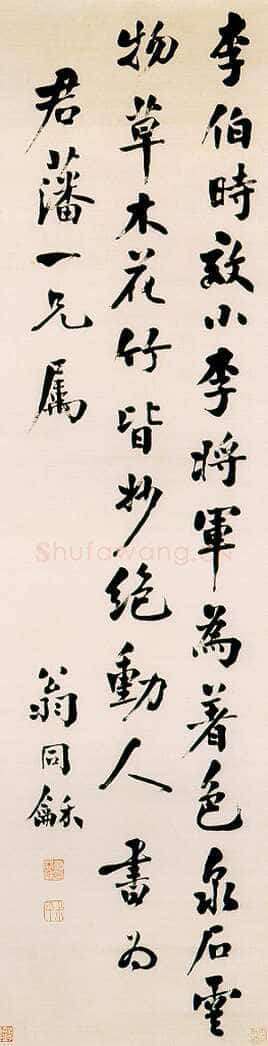 李伯時效小李將軍為著色泉石雲
物草木花竹皆妙絕動人書為
君藩一兄属
翁同龢
Shufawang.CN